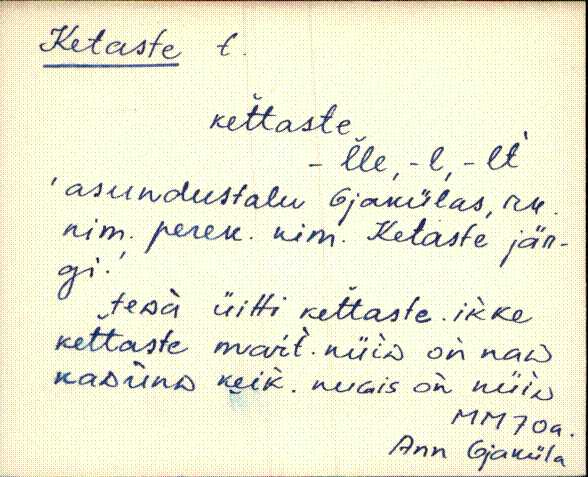 Ketaste t.
ket̆taste
- l̆le, -l, -lt̀
'asundustalu Ojakülas, rk.
nim. perek. nim. Ketaste jär-
gi.'
"teᴅà üitti ket̆taste. ikke
ket̆taste mart̀. nüiᴅ on naᴅ
kaᴅunᴅ keik̀. on nüiᴅ
MM 70a.
Ann Ojaküla